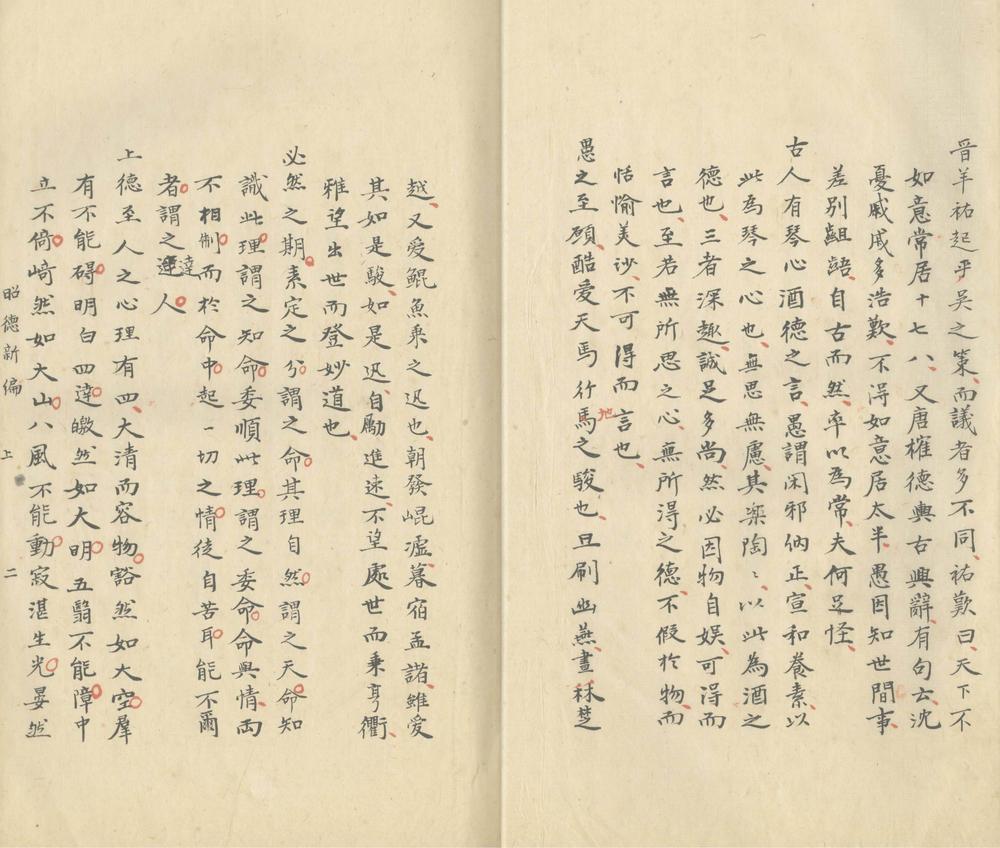 晉羊祐起平吳之策而議者多不同祐歎曰天下不
如意常居十七八又唐權德輿古興辭有句云沈
憂戚戚多浩歎不得如意居太半愚因知世間事
差別齟齬自古而然率以爲常夫何足怪
古人有琴心酒德之言愚謂闲邪納正宣和養素以
此爲琴之心也無思無慮其樂陶〻以此為酒之
德也三者深趣誠足多尚然必因物自娛可得而
言也至若無所思之心無所得之德不假於物而
恬愉美妙不可得而言也
愚之至頑酷愛天馬行地馬之駿也旦刷幽燕晝秣楚
越又爱鯤魚乘之迅也朝發崐墟暮宿孟諸雖爱
其如是駿如是迅自勵進速不望處世而乘亨衢
雅望出世而登妙道也
必然之期素定之分謂之命其理自然謂之天命知
識此理謂之知命委順此理謂之委命命與情兩
不相制制而於命中起一切之情徒自苦耳能不爾
者謂之運達人
上德至人之心理有四大清而容物豁然如大空羣
有不能礙明白四達皦然如大明五翳不能障中
立不倚崎然如大山八風不能動寂湛生光晏然
昭德新編 上 二